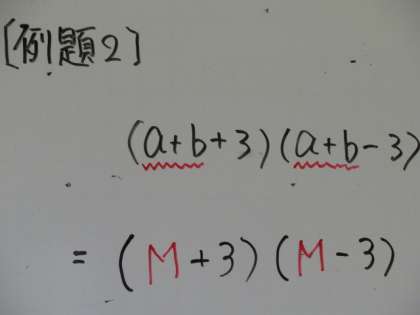 [例題2]
(a+b+3)(a+b-3)
=(M+3)(M-3)